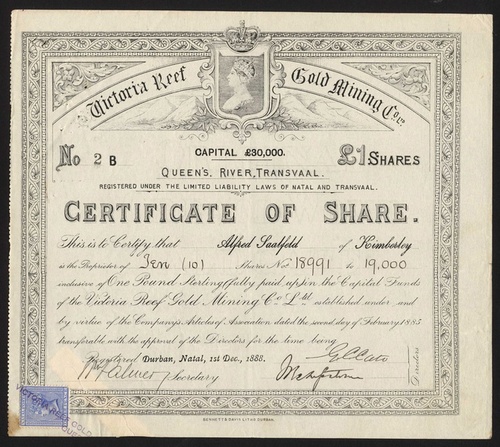 Victoria Reef Gold Mining Coy
No 2 B
CAPITAL £30,000.
£1 SHARES
QUEEN'S, RIVER, TRANSVAAL.
REGISTERED UNDER THE LIMITED LIABILITY LAWS OF NATAL AND TRANSVAAL.
CERTIFICATE OF SHARE.
This is to Certify that Alfred Saalfeld of Kimberley
is the Proprietor of Ten (10) Shares Nos 18991 to 19,000
inclusive of One Pound Sterling (fully paid up) in the Capital Funds
of the Victoria Reef Gold Mining Co Ltd. established under and
by virtue of the Company's Articles of Association dated the second day of February 1885
transferable with the approval of the Directors for the time being
Registered Durban, Natal, 1st Dec., 1888.
Secretary
Directors
VICTORIA REEF GOLD
BURNETT & DAVIS LITHO. DURBAN.